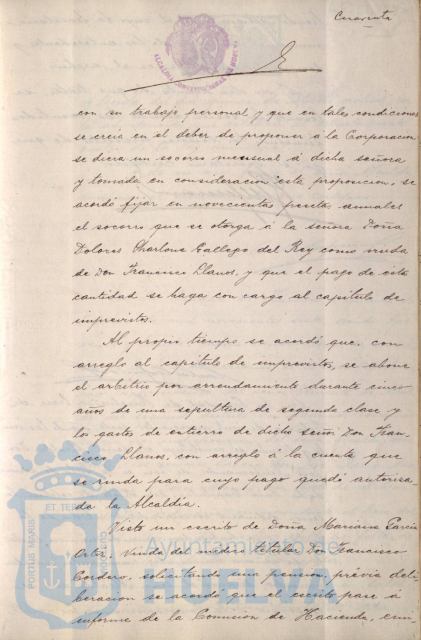 Cuarenta
ALCALDIA CONSTITUCIONAL DE HUELVA
con su trabajo personal y que en tales condiciones
se creia en el deber de proponer á la Corporacion
se diera un socorro mensual á dicha señora
y tomada en consideracion esta proposicion, se
acordó fijar en novecientas pesetas anuales
el socorro que se otorga á la señora Doña
Dolores Charlone Gallego del Rey como viuda
de Don Francisco Llanos, y que el pago de esta
cantidad se haga con cargo al capitulo de
imprevistos.
Al propio tiempo se acordó que, con
arreglo al capitulo de imprevistos, se abone
el arbitrio por arrendamiento durante cinco
años de una sepultura de segunda clase y
los gastos de entierro de dicho señor Don Fran-
cisco Llanos, con arreglo á la cuenta que
se rinda para cuyo pago quedó autoriza-
da la Alcaldia.
Visto un escrito de Doña Mariana Garcia
Ortiz, Viuda del medico titular Don Francisco
Cordero, solicitando una pension, prévia deli-
beracion se acordó que el escrito pase á
informe de la Comision de Hacienda,
PORTUS MARIS ET TERRE CUSTODIA
Ayuntamiento de
HUELVA